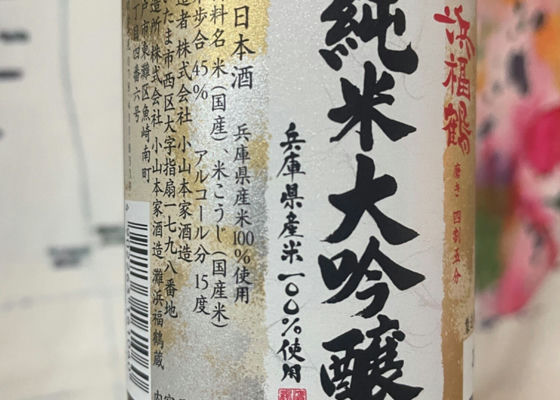 浜福鶴
磨き 四割五分
純米大吟醸
兵庫県産米一〇〇%使用
日本酒 兵庫県産米100%使用
料名 米(国産)、米こうじ(国産米)
歩合 45% アルコール分 15度
造者 株式会社 小山本家酒造
たま市西区大字指扇一七九八番地
造所 株式会社 小山本家酒造 灘浜福鶴蔵
戸市東灘区魚崎南町
丁目四番六号